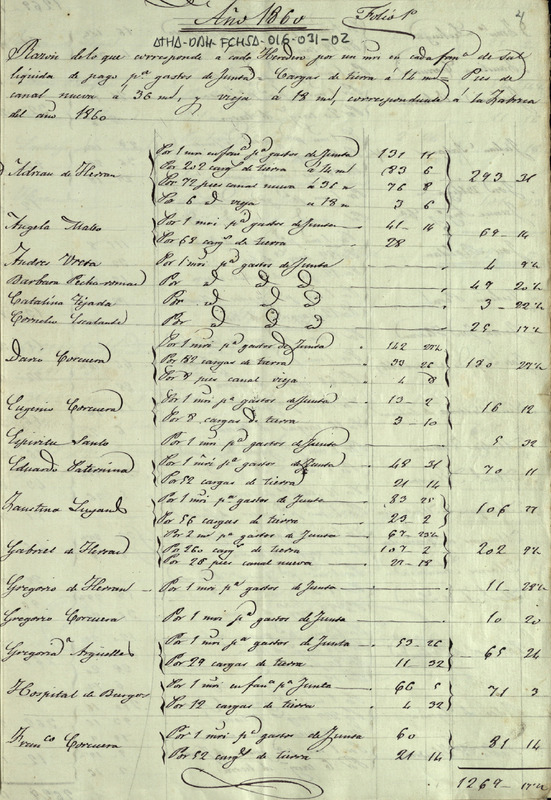 Año 1860 Folio 1º 4
ATHA-DAH-FCHSA-016-031-02
Razon de lo que corresponde a cada Heredero por un mri en cada fanª de Sal
liquida de pago pª gastos de Junta Cargas de tierra à 14 mrs Pies de
canal nueva à 36 md, y vieja à 18 md, correspondiente á la Fabrica
del año 1860
Adrian de Herran Por 1 mri en fanª pª gastos de Junta 131
Por 202 cargs de tierra à 14 md 83 6
Por 72 pies canal nueva à 36 m 76 8
Por 6 id vieja a 18 m 3 6 293 31
Angela Mateo Por 1 mri pª gastos de Junta 41 14
Por 68 cargs de tierra 28 69 14
Andres Por 1 mri pª gastos de Junta 4
Barbara Por id id id 47
Catalina Tejada Por id id id 3
Cornelio Escalante Por id id id 25
Dario Corcuera Por 1 mri pª gastos de Junta 142
Por 82 cargas de tierra 33 26
Por 8 pies canal vieja 4 8 180
Eugenio Corcuera Por 1 mri pª gastos de Junta 13 2
Por 8 cargas de tierra 3 10 16 12
Espiritu Santo Por 1 mri pª gastos de Junta 5 32
Eduardo Paternina Por 1 mri pª gastos de Junta 48 31
Por 52 cargas de tierra 21 14 70 11
Faustina Por 1 mri pª gastos de Junta 83 25
Por 56 cargas de tierra 23 2 106
Gabriel de Herran Por 2 mrs pª gastos de Junta 67
Por 260 cargs de tierra 107 2
Por 26 pies canal nueva 27 18 202
Gregorio de Herran Por 1 mri pª gastos de Junta 11
Gregorio Corcuera Por 1 mri pª gastos de Junta 10 20
Gregoria Arguelles Por 1 mri pª gastos de Junta 53 26
Por 29 cargas de tierra 11 32 65 24
Hospital de Burgos Por 1 mri en fanª pª Junta 66 5
Por 12 cargas de tierra 4 32 71 3
Franco Corcuera Por 1 mri pª gastos de Junta 60
Por 52 cargs de tierra 21 14 81 14
1269